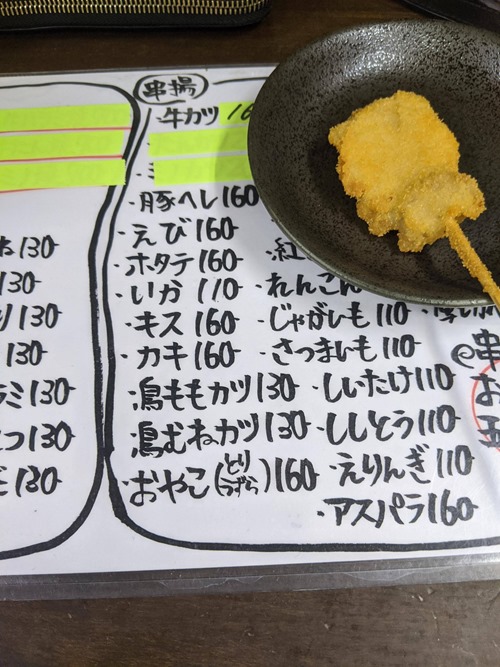 串揚
・牛カツ
・豚ヘレ160
・えび160
・ホタテ160
・いか110
・キス160
・カキ160
・鳥ももカツ130
・鳥むねカツ130
・おやこ(とりうずら)160
・紅
・れんこん
・じゃがいも110
・さつまいも110
・しいたけ110
・ししとう110
・えりんぎ110
・アスパラ160
130
130
130
130
130
130
130
串
お